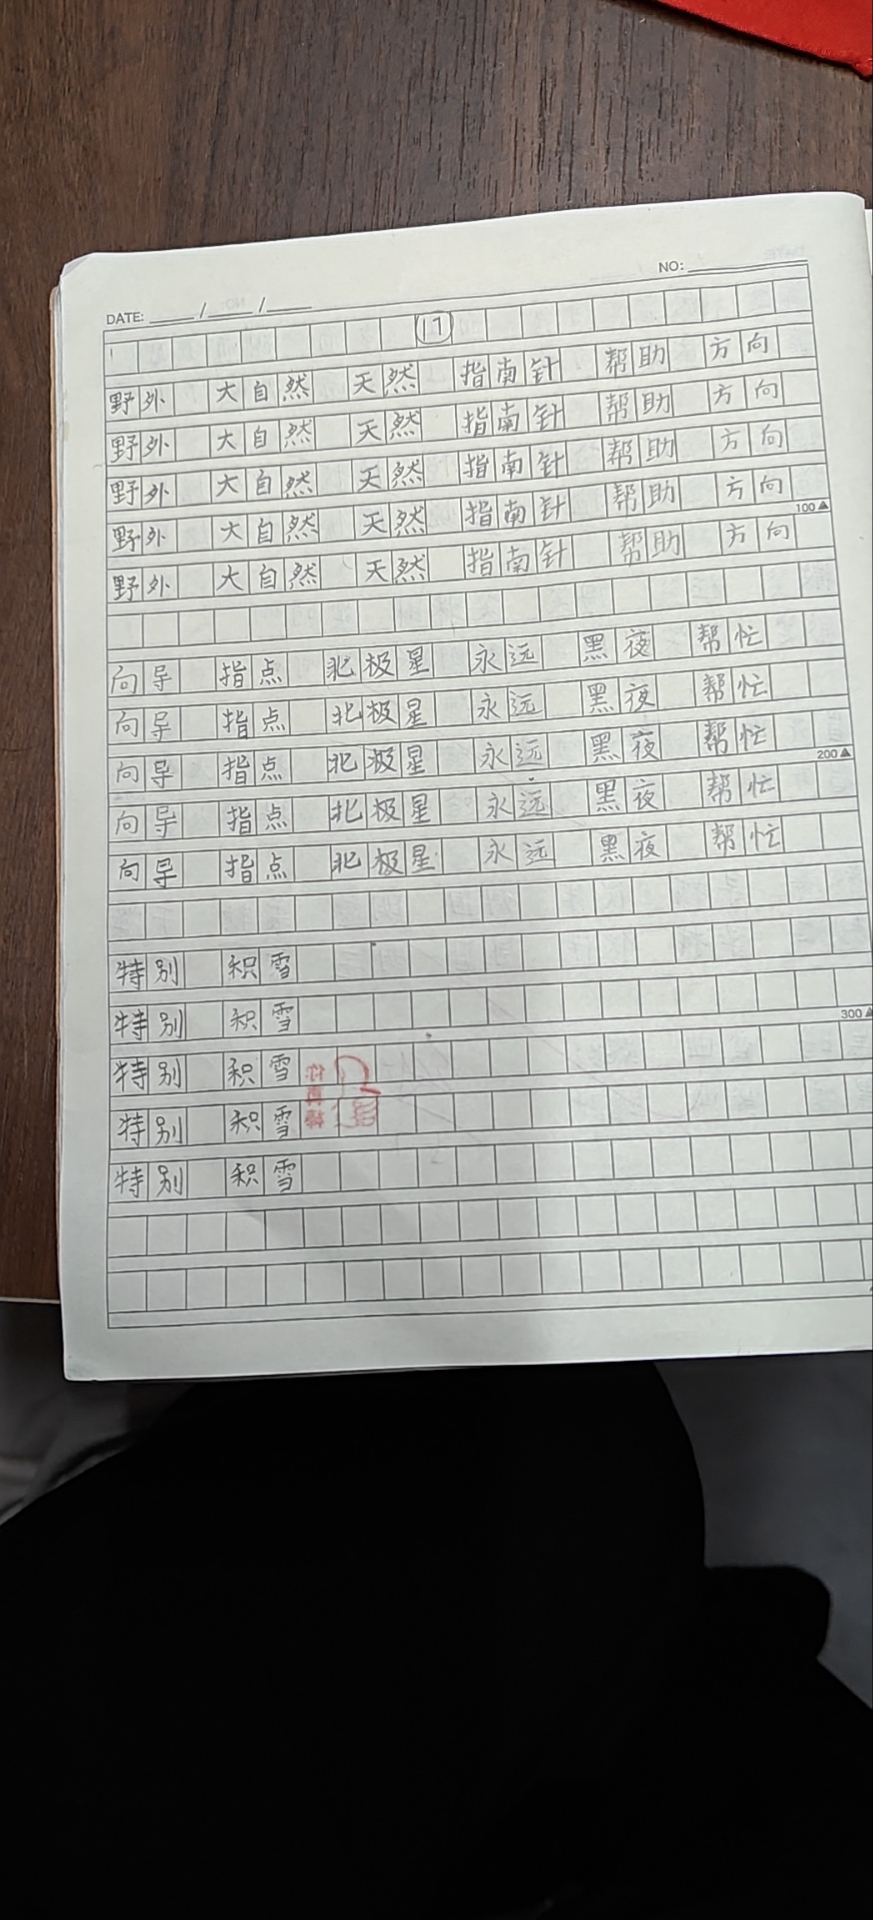 NO:
DATE: / /
17
野外 大自然 天然 指南针 帮助 方向
野外 大自然 天然 指南针 帮助 方向
野外 大自然 天然 指南针 帮助 方向
野外 大自然 天然 指南针 帮助 方向
100
野外 大自然 天然 指南针 帮助 方向
向导 指点 北极星 永远 黑夜 帮忙
向导 指点 北极星 永远 黑夜 帮忙
向导 指点 北极星 永远 黑夜 帮忙
200
向导 指点 北极星 永远 黑夜 帮忙
向导 指点 北极星 永远 黑夜 帮忙
特别 积雪
特别 积雪
300
特别 积雪
特别 积雪
特别 积雪
你真棒